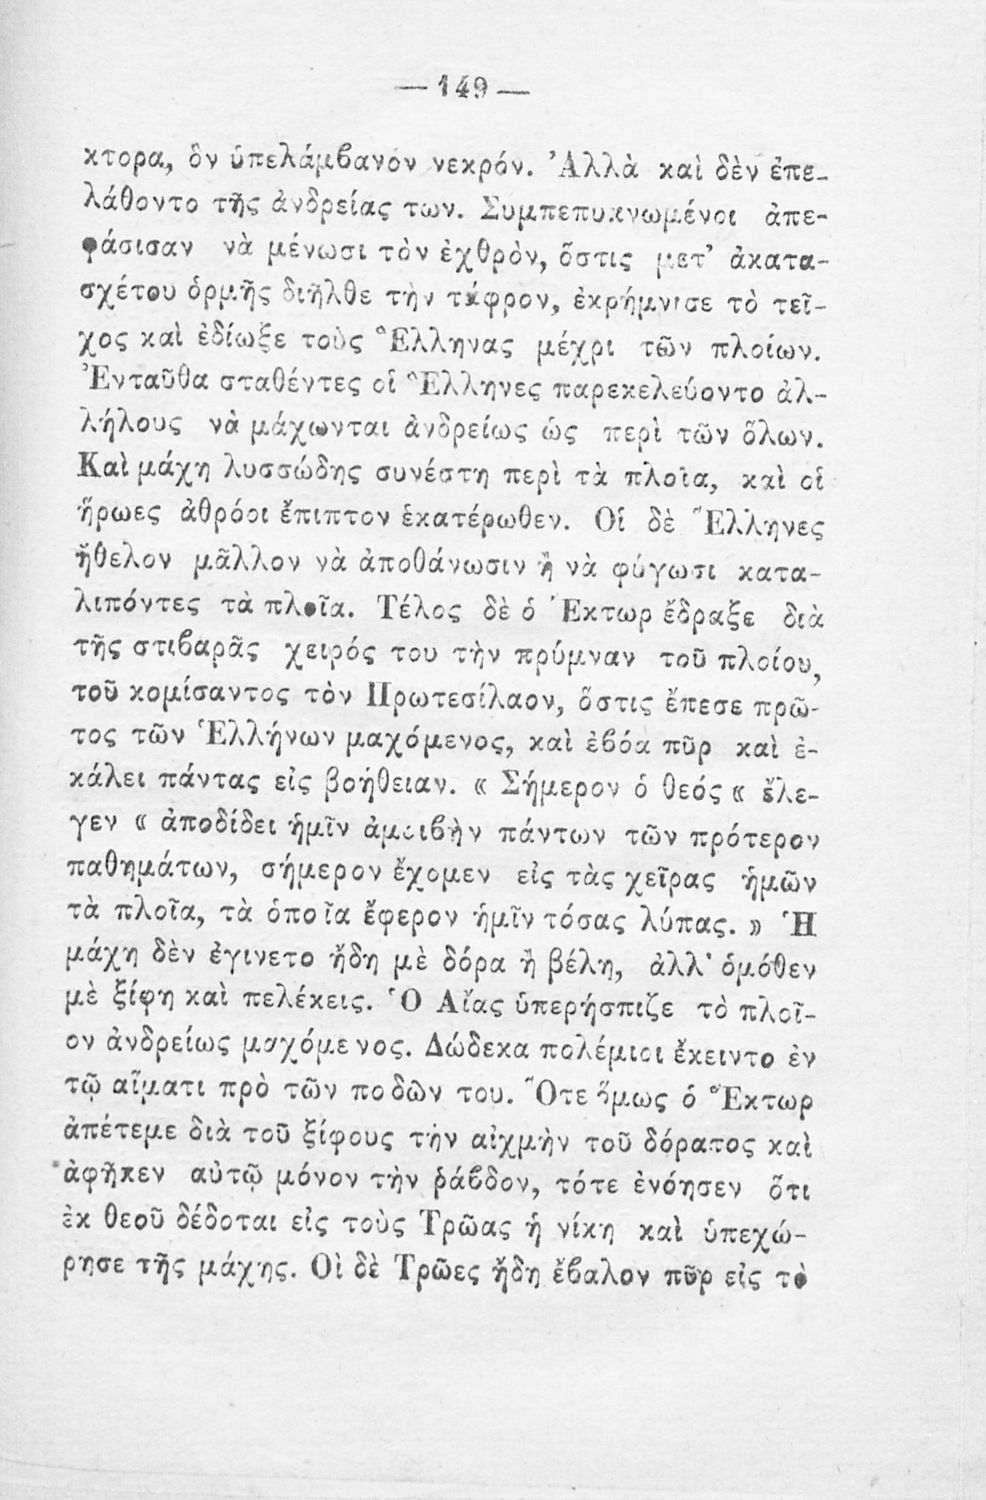 — 149 —
κτορα, ὃν ὑπελάμβανον νεκρόν. Ἀλλὰ καὶ δὲν ἐπε-
λάθοντο τῆς ἀνδρείας των. Συμπεπυκνωμένοι ἀπε-
φάσισαν νὰ μένωσι τὸν ἐχθρὸν, ὅστις μετ’ ἀκατα-
σχέτου ὁρμῆς διῆλθε τὴν τάφρον, ἐκρήμνισε τὸ τεῖ-
χος καὶ ἐδίωξε τοὺς Ἕλληνας μέχρι τῶν πλοίων.
Ἐνταῦθα σταθέντες οἱ Ἕλληνες παρεκελεύοντο ἀλ-
λήλους νὰ μάχωνται ἀνδρείως ὡς περὶ τῶν ὅλων.
Καὶ μάχη λυσσώδης συνέστη περὶ τὰ πλοῖα, καὶ οἱ
ἥρωες ἀθρόοι ἔπιπτον ἑκατέρωθεν. Οἱ δὲ Ἕλληνες
ἤθελον μᾶλλον νὰ ἀποθάνωσιν ἢ νὰ φύγωσι κατα-
λιπόντες τὰ πλοῖα. Τέλος δὲ ὁ Ἕκτωρ ἔδραξε διὰ
τῆς στιβαρᾶς χειρός του τὴν πρύμναν τοῦ πλοίου,
τοῦ κομίσαντος τὸν Πρωτεσίλαον, ὅστις ἔπεσε πρῶ-
τος τῶν Ἑλλήνων μαχόμενος, καὶ ἐβόα πῦρ καὶ ἐ-
κάλει πάντας εἰς βοήθειαν. « Σήμερον ὁ θεός « ἔλε-
γεν « ἀποδίδει ἡμῖν ἀμοιβὴν πάντων τῶν πρότερον
παθημάτων, σήμερον ἔχομεν εἰς τὰς χεῖρας ἡμῶν
τὰ πλοῖα, τὰ ὁποῖα ἔφερον ἡμῖν τόσας λύπας. » Ἡ
μάχη δὲν ἐγινετο ἤδη μὲ δόρα ἢ βέλη, ἀλλ’ ὁμόθεν
μὲ ξίφη καὶ πελέκεις. Ὁ Αἴας ὑπερήσπιζε τὸ πλοῖ-
ον ἀνδρείως μαχόμενος. Δώδεκα πολέμιοι ἔκειντο ἐν
τῷ αἵματι πρὸ τῶν ποδῶν του. Ὅτε ὅμως ὁ Ἕκτωρ
ἀπέτεμε διὰ τοῦ ξίφους τὴν αἰχμὴν τοῦ δόρατος καὶ
ἀφῆκεν αὐτῷ μόνον τὴν ῥάβδον, τότε ἐνόησεν ὅτι
ἐκ θεοῦ δέδοται εἰς τοὺς Τρῶας ἡ νίκη καὶ ὑπεχώ-
ρησε τῆς μάχης. Οἱ δὲ Τρῶες ἤδη ἔβαλον πῦρ εἰς τὸ